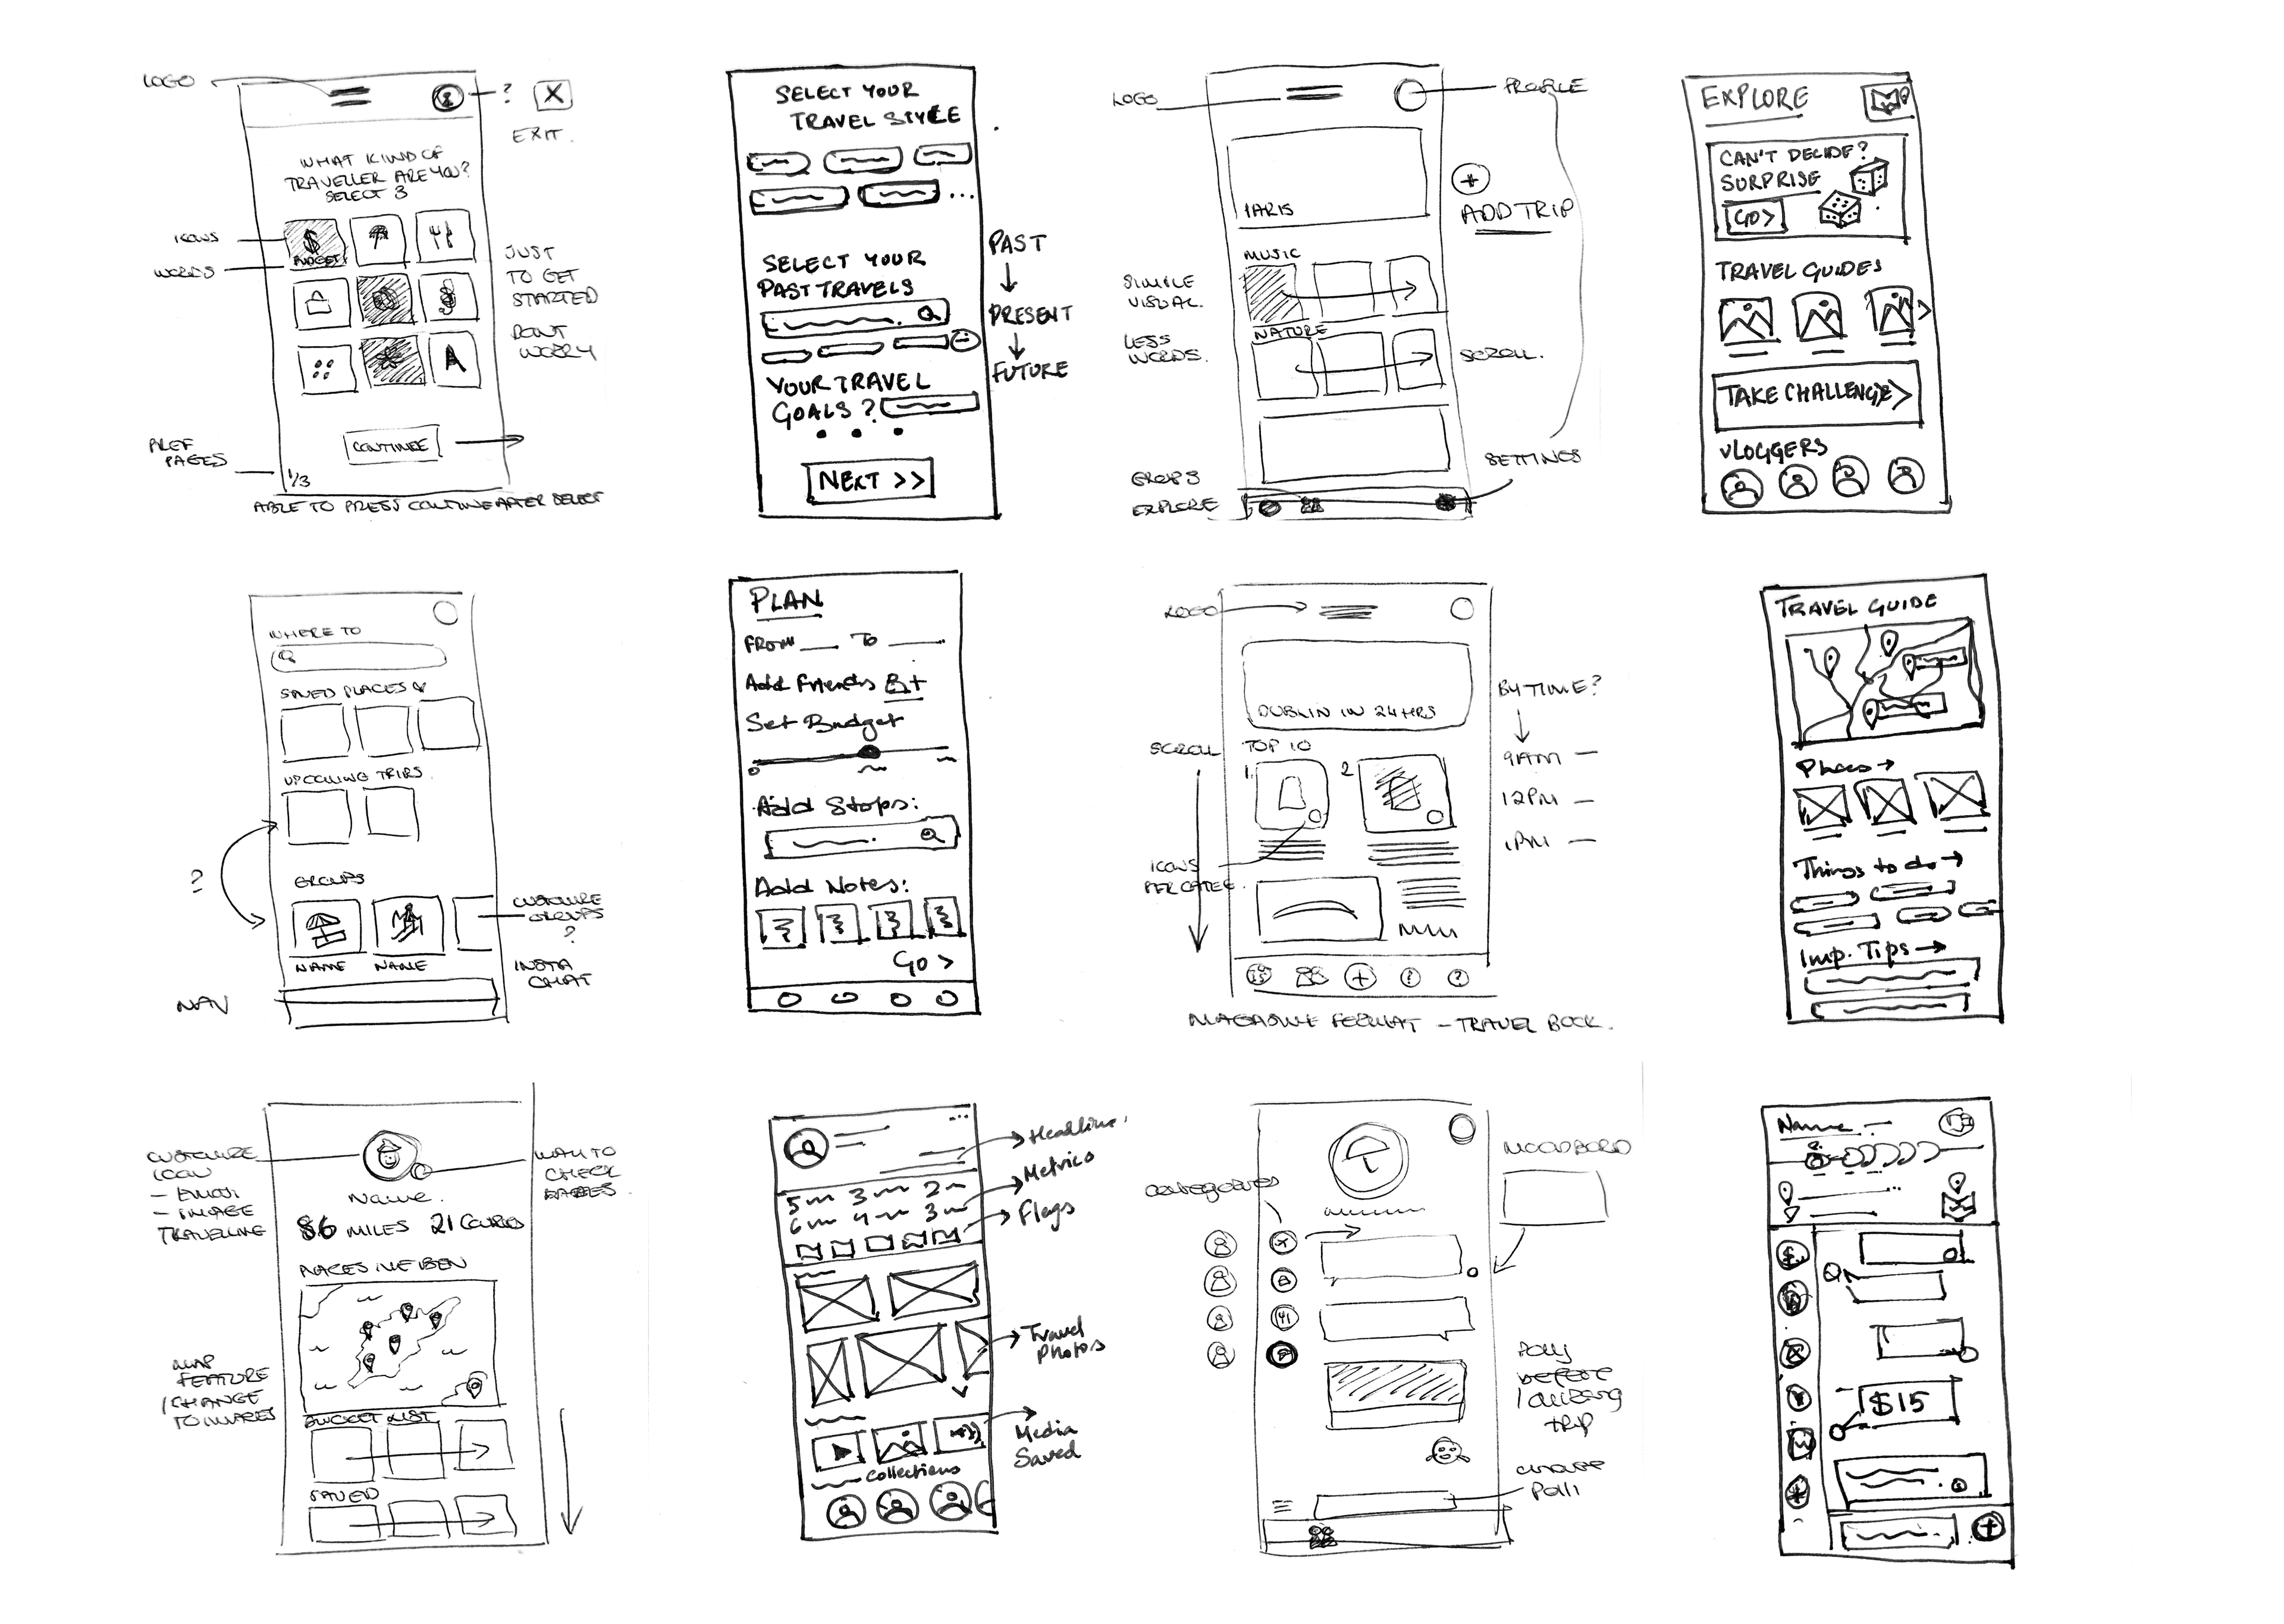 LOGO
?
X
EXIT.
WHAT KIND OF
TRAVELLER ARE YOU?
SELECT 3
ICONS
WORDS
$
BUDGET
A
JUST
TO GET
STARTED
DONT
WORRY
PREF
PAGES
CONTINUE
1/3
ABLE TO PRESS CONTINUE AFTER SELECT
SELECT YOUR
TRAVEL STYLE
...
SELECT YOUR
PAST TRAVELS
YOUR TRAVEL
GOALS?
NEXT >>
PAST
PRESENT
FUTURE
LOGO
PROFILE
PARIS
+
ADD TRIP
MUSIC
SIMPLE
VISUAL.
NATURE
LESS
WORDS.
SCROLL.
SETTINGS
GROUPS
EXPLORE
EXPLORE
CAN'T DECIDE?
SURPRISE
GO>
TRAVEL GUIDES
>
TAKE CHALLENGE>
VLOGGERS
WHERE TO
SAVED PLACES
UPCOMING TRIPS.
?
GROUPS
NAME
NAME
CUSTOMIZE
GROUPS
?
INSTA
CHAT
NAV
PLAN
FROM To
Add Friends +
Set Budget
Add Stops:
Add Notes:
Go >
LOGO
DUBLIN IN 24HRS
BY TIME?
9AM —
12PM —
1PM —
SCROLL
TOP 10
1.
2
ICONS
PER CATEG.
+
!
?
MAGAZINE FORMAT - TRAVEL BOOK.
TRAVEL GUIDE
Places →
Things to do →
Imp. Tips →
CUSTOMIZE
ICON
- EMOJI
- IMAGE
TRAVELLING
WAY TO
CHECK
BADGES
Name.
86 MILES 21 COUNTRIES
PLACES IVE BEEN
MAP
FEATURE
/CHANGE
TO IMAGES
BUCKET LIST
SAVED
...
Headline.
Metrics
Flags
5 3 2
6 4 3
Travel
Photos
Media
Saved
Collections
MOODBOARD
CATEGORIES
POLLS
BEFORE
/ DURING
TRIP
CREATE
POLL
Name
$
$15
+